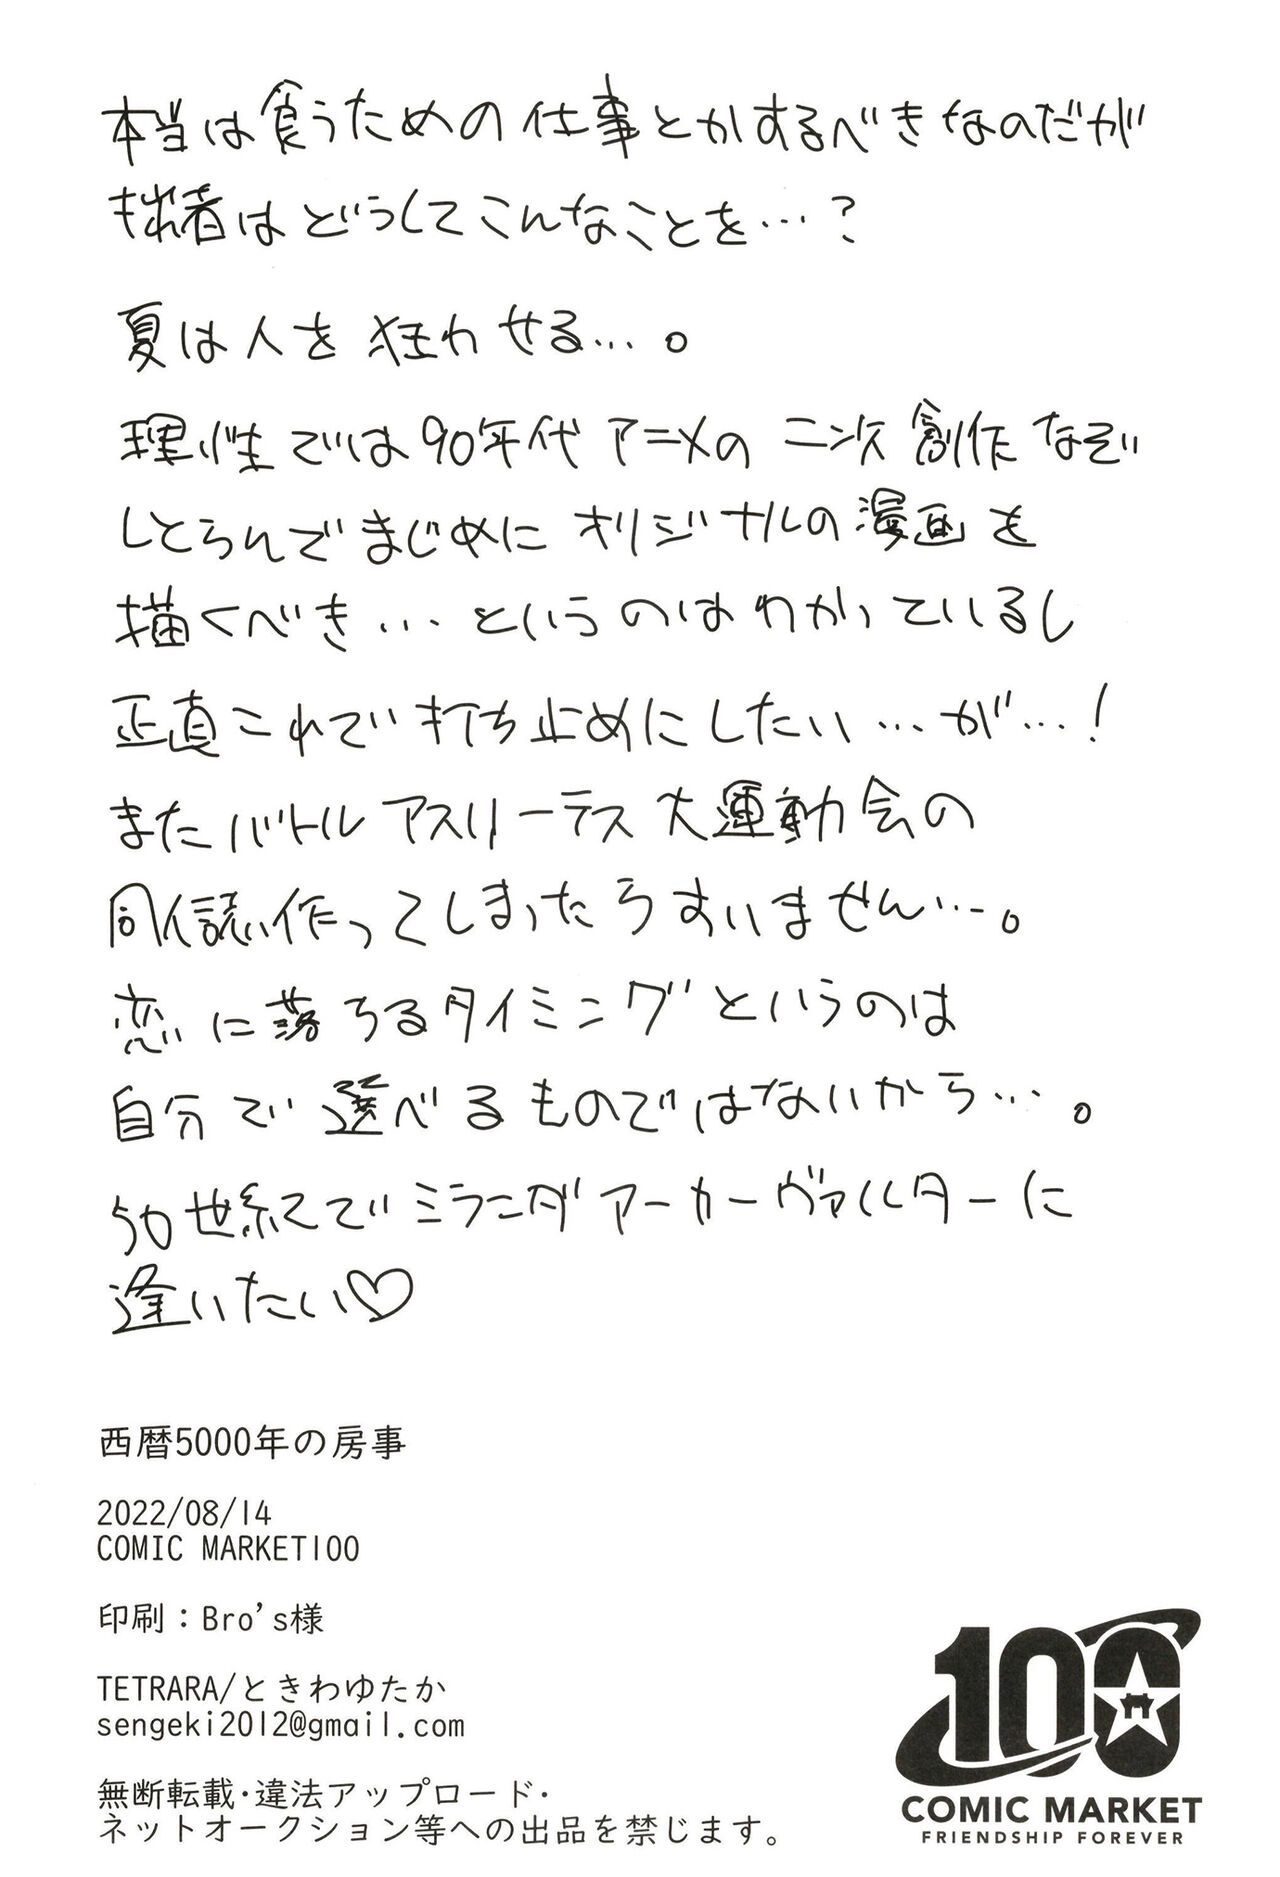 本当は食うための仕事とかするべきなのだが
拙者はどうしてこんなことを…?
夏は人を狂わせる…。
理性では90年代アニメの二次創作なぞ
しとらんでまじめにオリジナルの漫画を
描くべき…というのはわかっているし
正直これで打ち止めにしたい…が…!
またバトルアスリーテス大運動会の
同人誌作ってしまったらすいません…。
恋に落ちるタイミングというのは
自分で選べるものではないから…。
50世紀でミランダアーカーヴァルターに
逢いたい♡
西暦5000年の房事
2022/08/14
COMIC MARKET100
印刷：Bro's様
TETRARA/ときわゆたか
sengeki2012@gmail.com
無断転載・違法アップロード・
ネットオークション等への出品を禁じます。
100
COMIC MARKET
FRIENDSHIP FOREVER